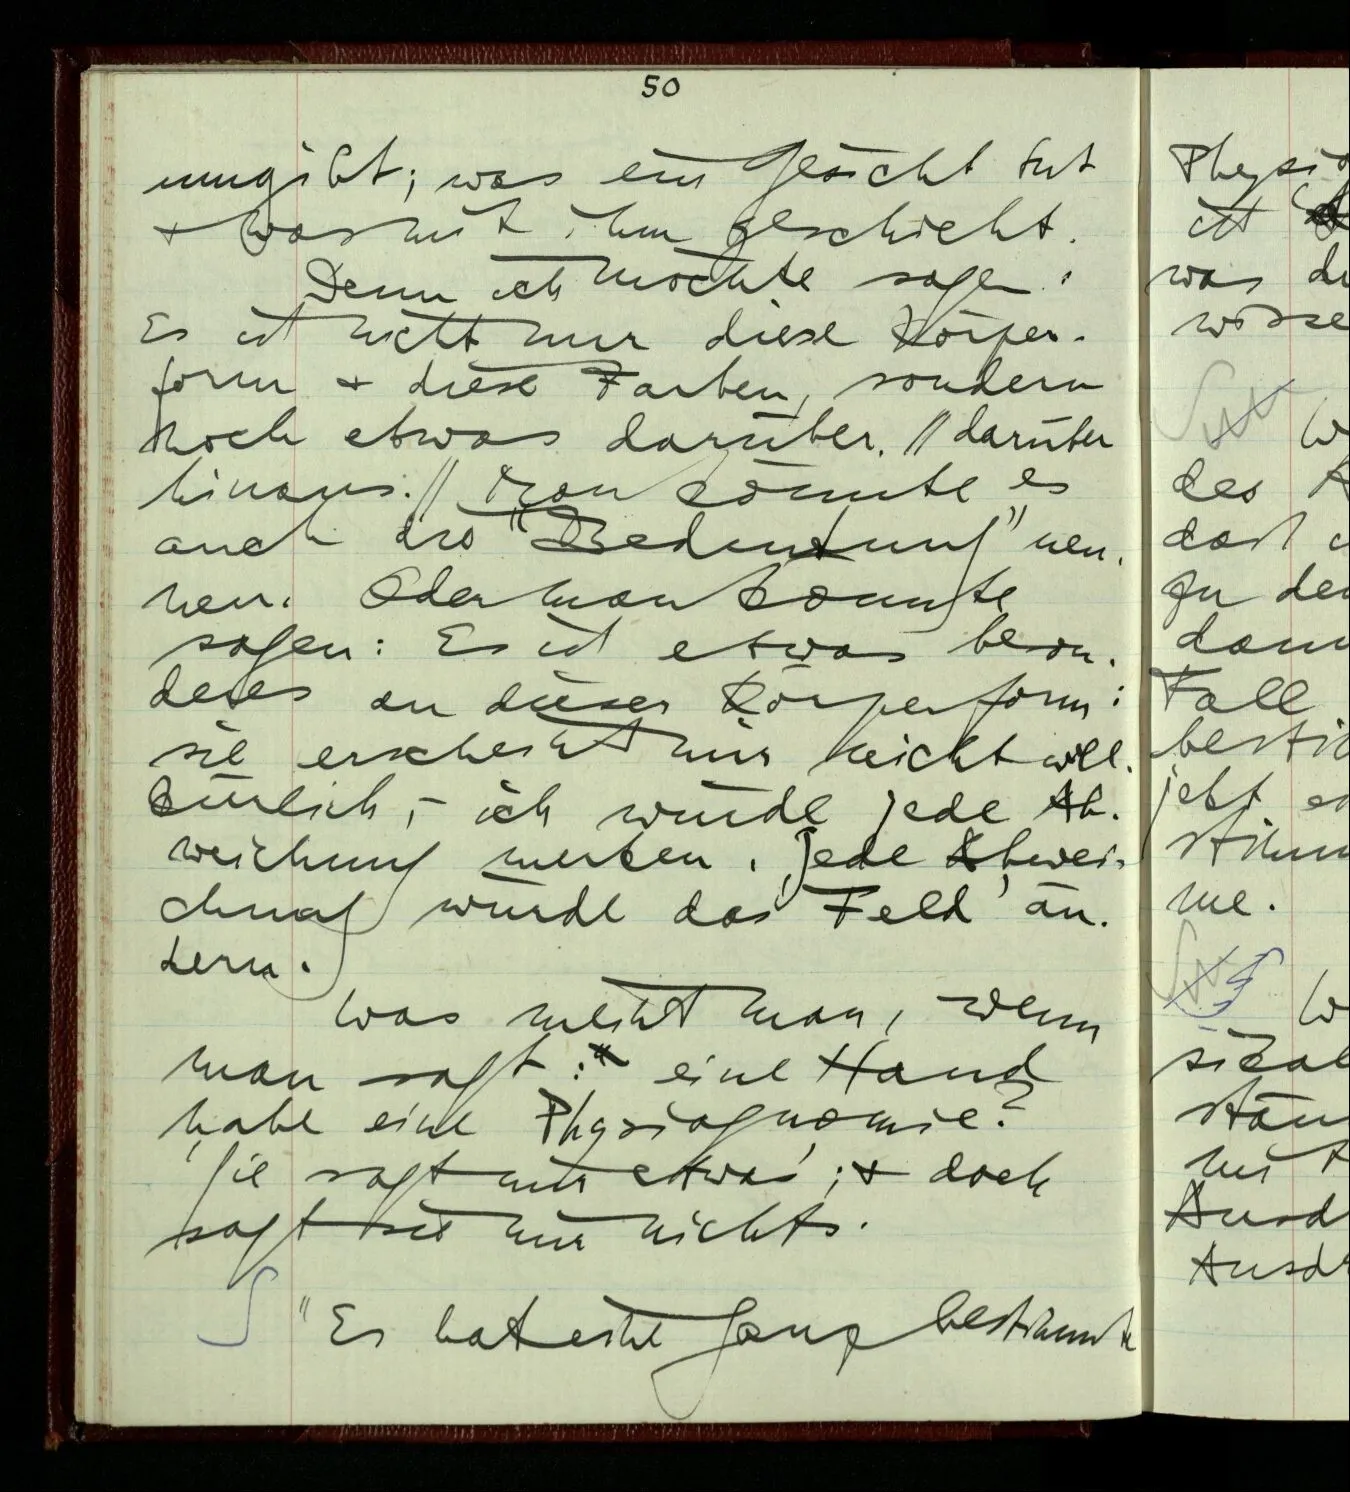 50
umgibt; was ein Gesicht tut
+ was mit ihm geschieht.
Denn ich möchte sagen:
Es ist nicht nur diese Körper-
form + diese Farben, sondern
noch etwas darüber. // darüber
hinaus. // Man könnte es
auch die "Bedeutung" nen-
nen. Oder man könnte
sagen: Es ist etwas beson-
deres an dieser Körperform:
sie erscheint mir nicht will-
kürlich, – ich würde jede Ab-
weichung merken. Jede Abwei-
chung würde das 'Feld' än-
dern.
Was meint man, wenn
man sagt: eine Hand
habe eine Physiognomie?
'Sie sagt mir etwas'; + doch
sagt sie mir nichts.
∫ "Es hat eine ganz bestimmte
Physio
ist
was di
wisse
W
des
das
zu de
dann
Fall
besti
jetzt
stimm
me.
W
sikal
stän
mit
Ausd
Ausdr